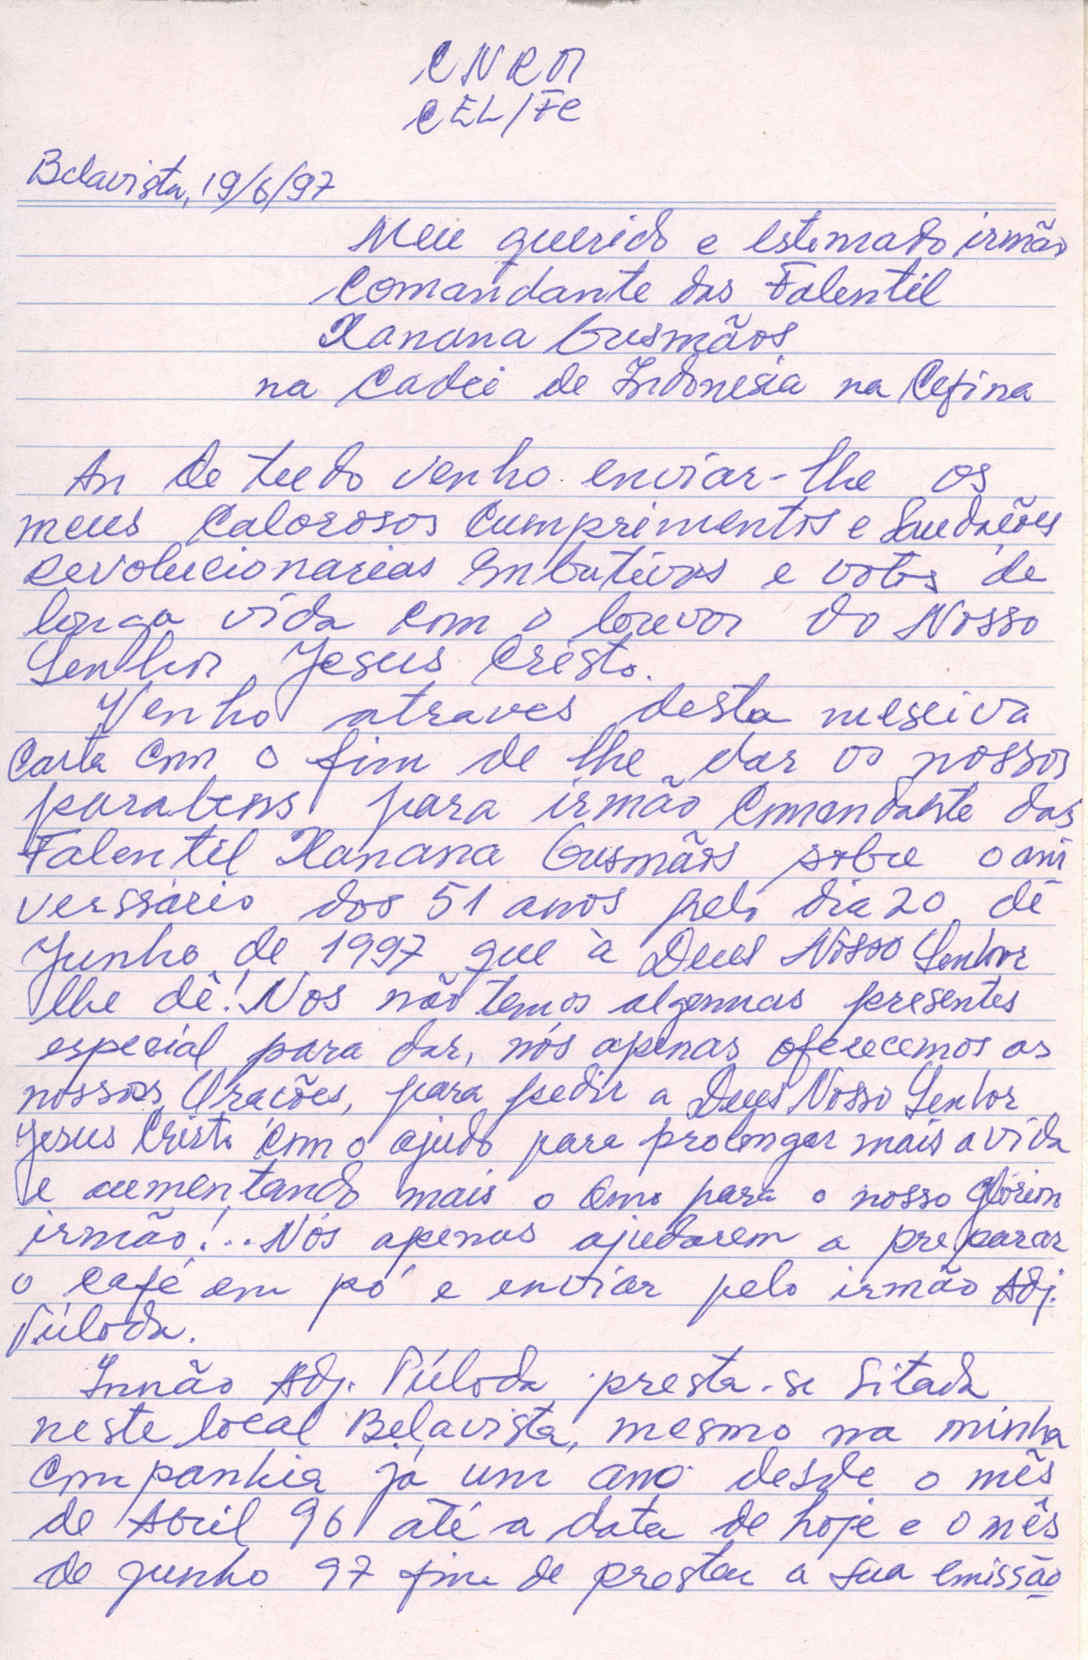 CNRM
CEL/FC
Belavista, 19/6/97
Meu querido e estimado irmão
Comandante das Falentil
Xanana Gusmãos
na Cadei de Indonesia na
An de tudo venho enviar-lhe os
meus Calorosos Cumprimentos e Saudações
revolucionarias e votos de
longa vida com o louvor do Nosso
Senhor Jesus Cristo.
Venho atraves desta meseiva
Carta com o fim de lhe dar os nossos
parabens para irmão Comandante das
Falentil Xanana Gusmãos sobre o ani
verssario dos 51 anos pelo dia 20 de
Junho de 1997 que à Deus Nosso Senhor
lhe dê! Nos não temos algumas presentes
especial para dar, nós apenas oferecemos as
nossas Orações, para pedir a Deus Nosso Senhor
Jesus Cristo com o ajudo para prolongar mais a vida
e aumentando mais o para o nosso
irmão!.. Nós apenas ajudarem a preparar
o café em pó e enviar pelo irmão Adj.
Irmão Adj. presta-se Sitada
neste local Belavista, mesmo na minha
Companhia já um ano desde o mês
de Abril 96 até a data de hoje e o mês
de junho 97 fim de prestar a sua emissão